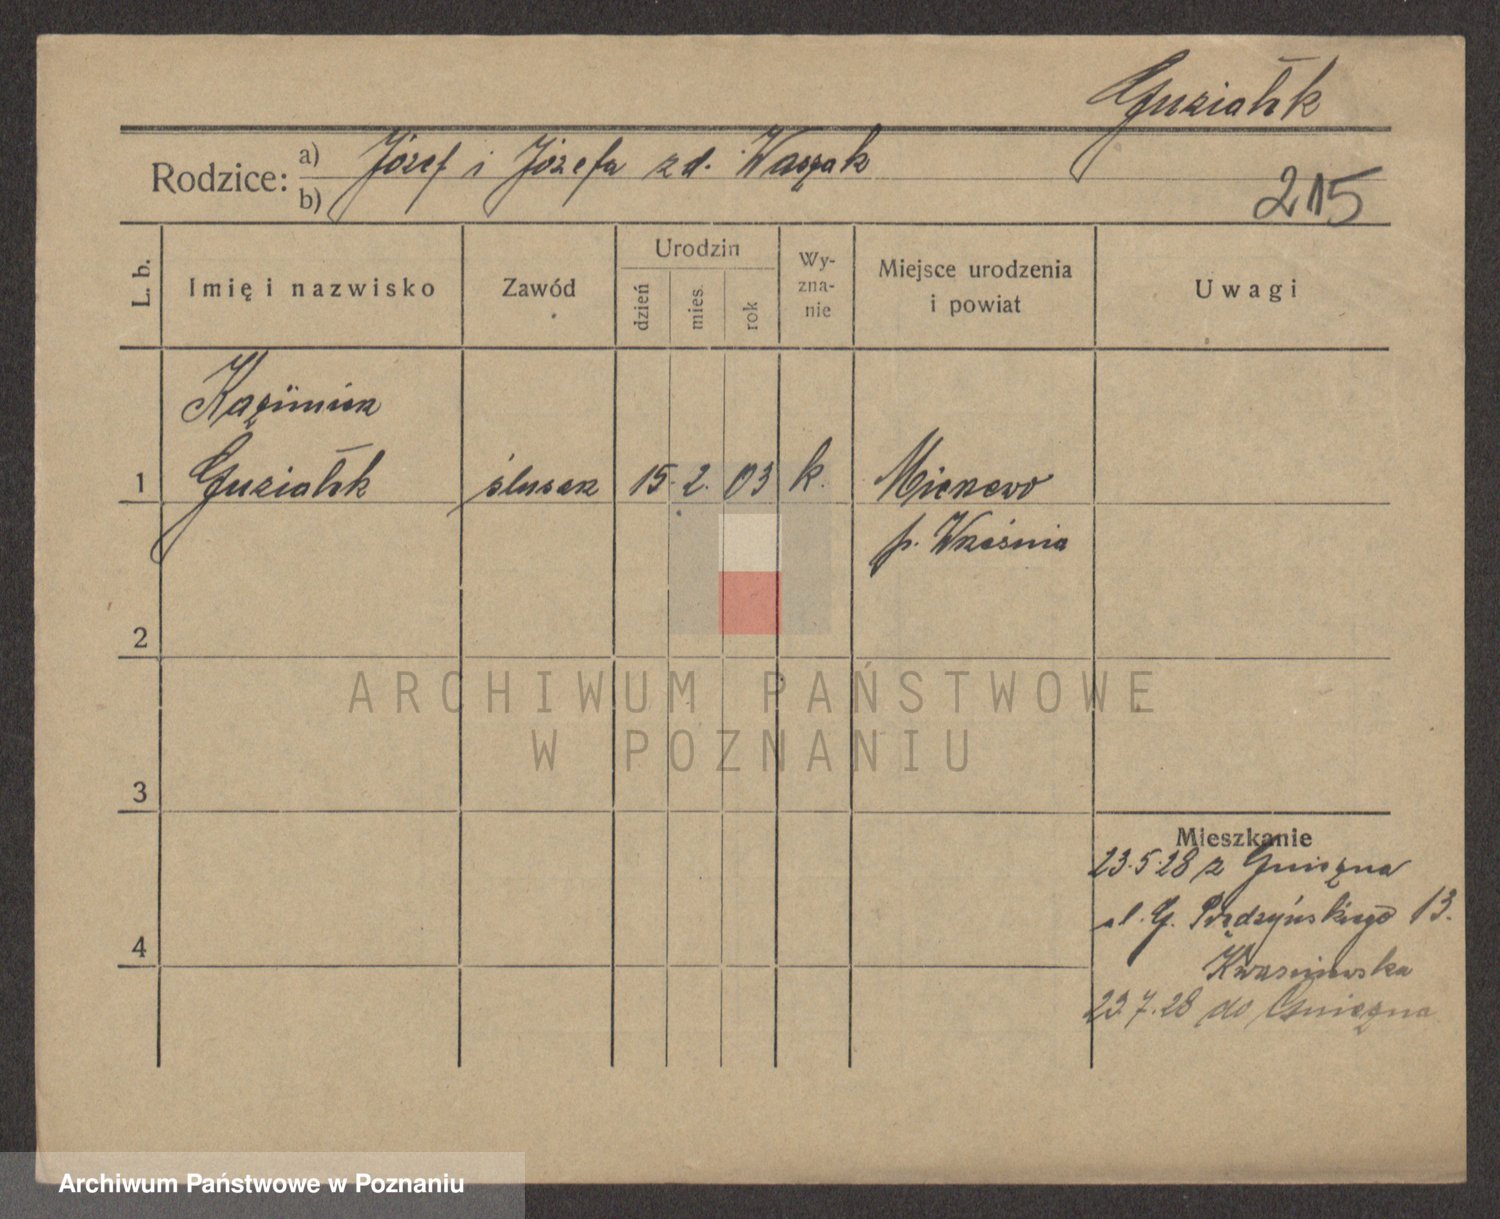 Guziałek
Rodzice: a) Józef i Józefa zd. Waszak
b)
215
L. b.
Imię i nazwisko
Zawód
Urodzin
dzień
mies.
rok
Wy-
zna-
nie
Miejsce urodzenia
i powiat
Uwagi
Kazimierz
1 Guziałek ślusarz 15. 2. 03 k. Mierzewo
p. Września
2
ARCHIWUM PAŃSTWOWE
W POZNANIU
3
Mieszkanie
23.5.28 z Gniezna
ul. G. Prądzyńskiego 13.
4
Kwasniewska
23.7.28 do Gniezna
Archiwum Państwowe w Poznaniu